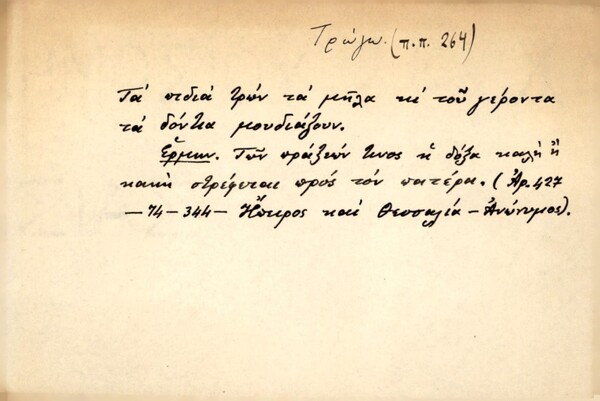 Τρώγω. (π.π. 264)
Τά πιδιά τρών τά μῆλα κί τοῦ γέροντα
τά δόντια μουδιάζουν.
Ἑρμην. Τῶν πράξεών τινος ἡ δόξα καλή ἤ
κακή στρέφεται πρός τόν πατέρα. (Ἀρ. 427
—74—344— Ἤπειρος καί Θεσσαλία—Ἀνώνυμος).